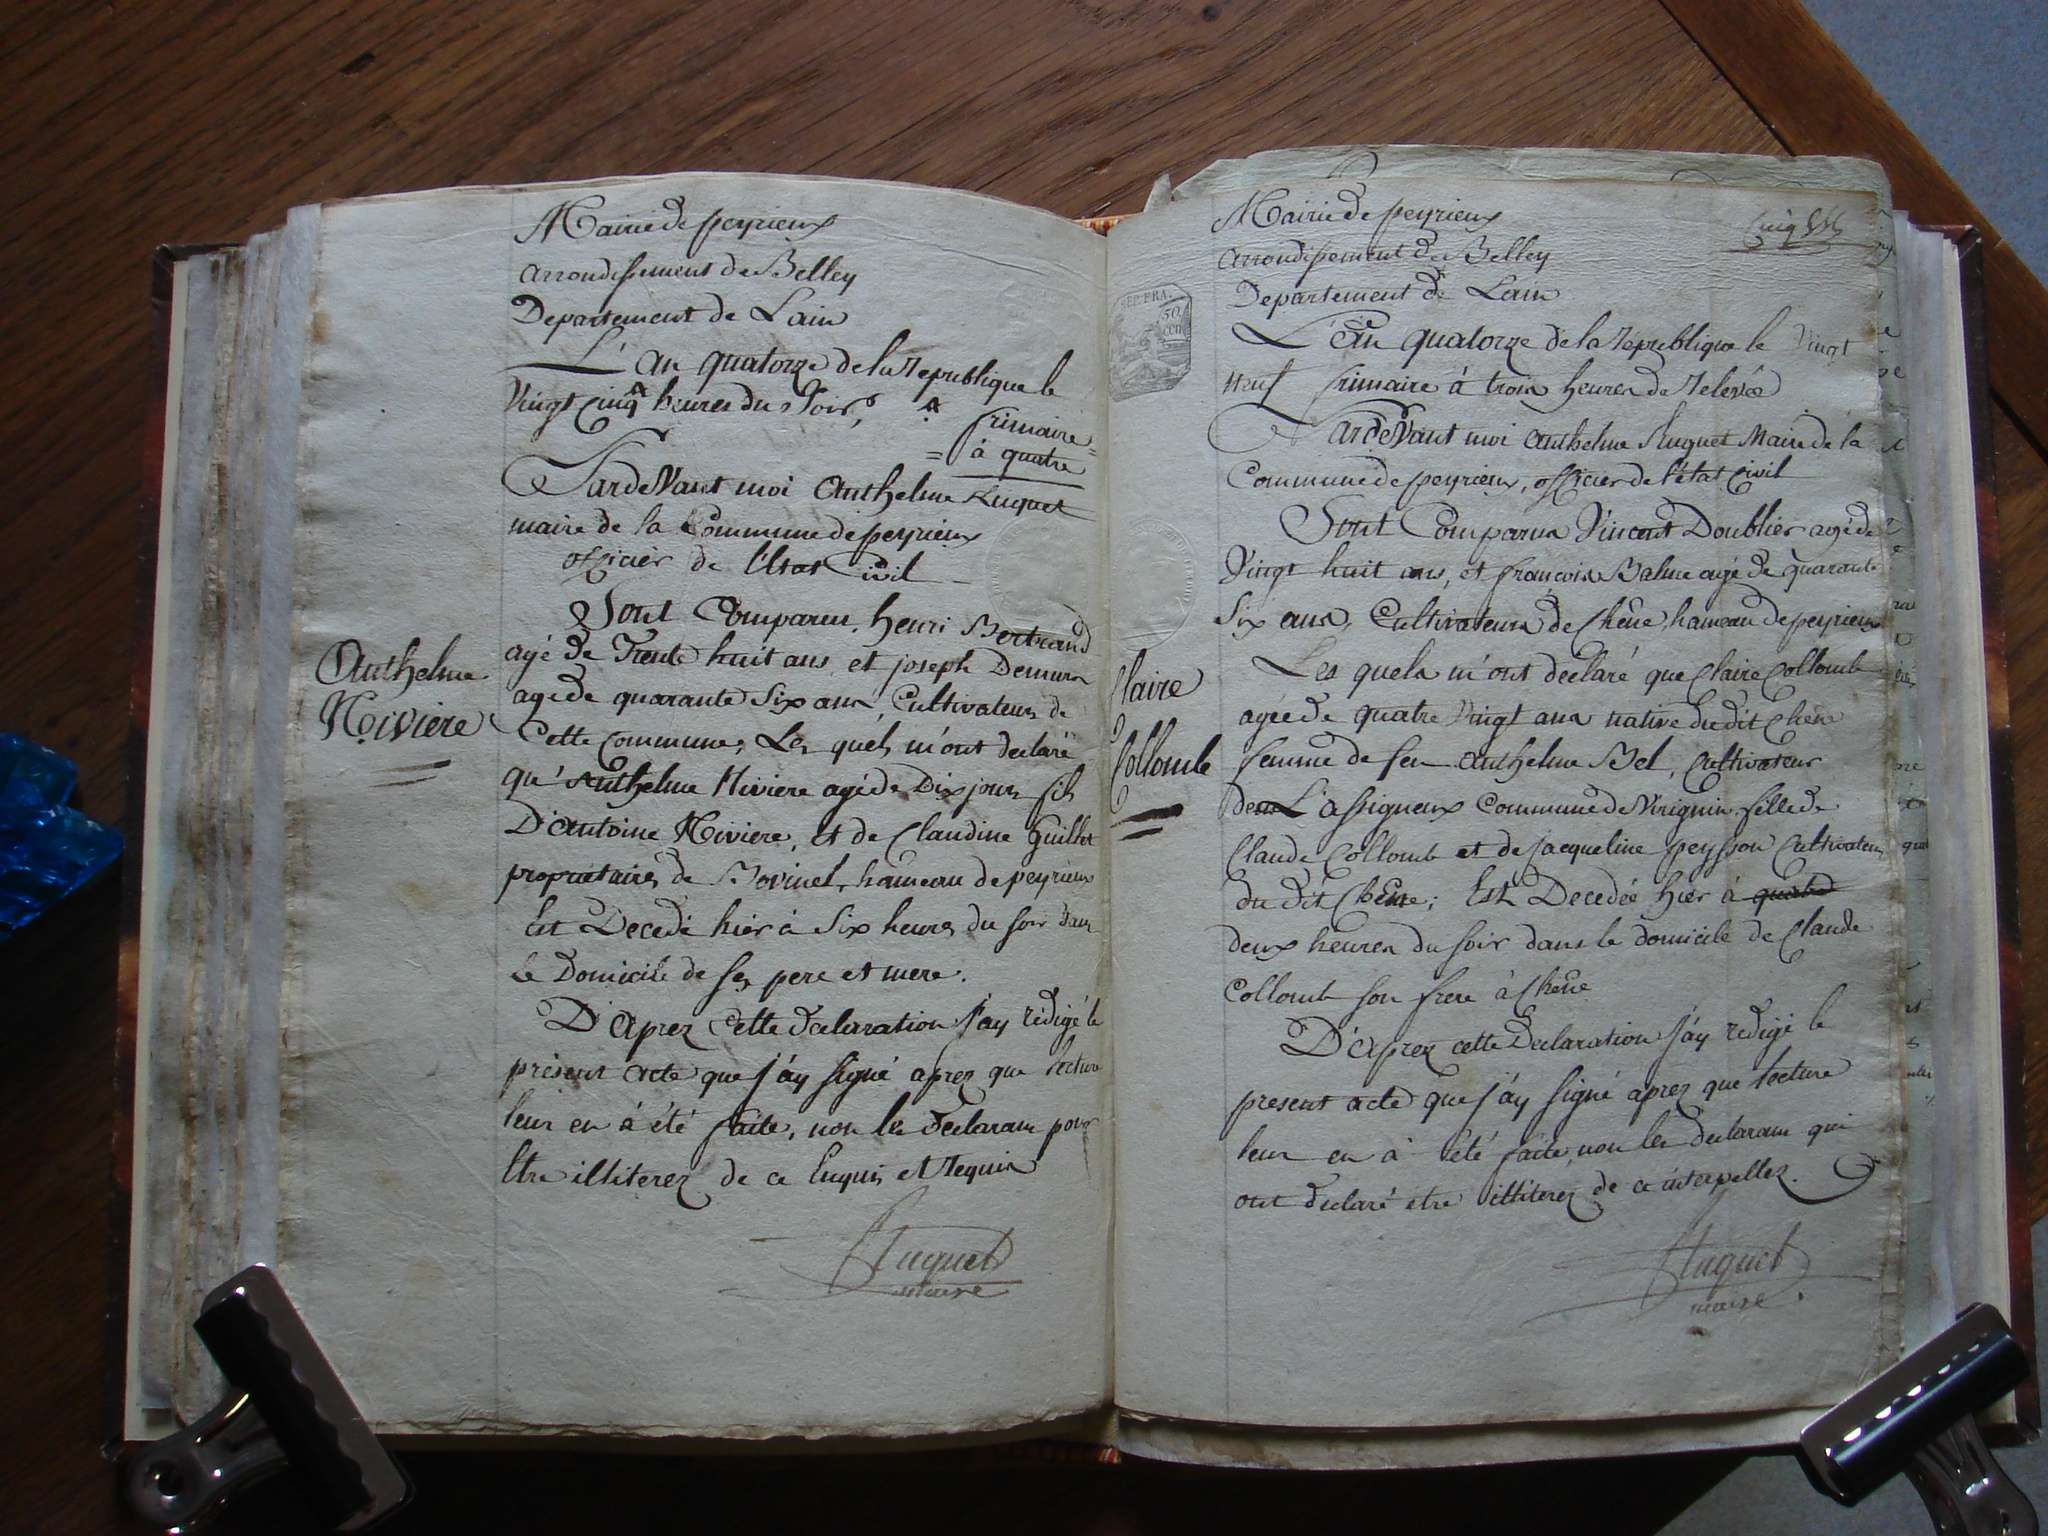 Mairie de peyrieux
arrondissement de Belley
Departement de Lain
L'an quatorze de la republique le
Vingt Cinq heures du Soir,
frimaire
= à quatre =
Pardevant moi Anthelme Huguet
maire de la Commune de peyrieux
officier de l'Etat Civil
Sont Comparus, henri Bertrand
agé de Trente huit ans et joseph Demurs
agé de quarante Six ans, Cultivateurs de
Cette Commune, Les quels m'ont declaré
qu'Anthelme Riviere agé de Dix jours fils
D'antoine Riviere, et de Claudine Guillet
proprietaires de Bovinel, hameau de peyrieux
Est Decedé hier à Six heures du soir dans
le Domicile de ses pere et mere.
D'aprez Cette declaration j'ay redigé le
present acte que j'ay signé aprez que lecture
leur en à été faite, non les declarans pour
Etre illiterez de ce Enquis et Requis
Huguet
maire
Anthelme
Riviere
Mairie de peyrieux
Cinq
arrondissement de Belley
Departement de Lain
REP. FRA.
50
cen
L'an quatorze de la republique le Vingt
neuf frimaire à trois heures de relevée
Pardevant moi Anthelme Huguet Maire de la
Commune de peyrieux, officier de l'état Civil
Sont Comparus Vincent Doublier agé de
Vingt huit ans, et françois Balme agé de quarante
Six ans, Cultivateurs de Chêne, hameau de peyrieux
Les quels m'ont declaré que Claire Collomb
agée de quatre Vingt ans native du dit Chêne
femme de feu Anthelme Bel, Cultivateur
de L'assignieux Commune de Virignin, fille de
Claude Collomb et de jacqueline peysson Cultivateurs
du dit Chêne; Est Decedée hier à quatre
deux heures du soir dans le domicile de Claude
Collomb son frere à Chêne
D'aprez cette Declaration j'ay redigé le
present acte que j'ay signé aprez que lecture
leur en à été faite, non les declarans qui
ont declaré etre illiterez de ce interpellez.
Huguet
maire.
Claire
Collomb